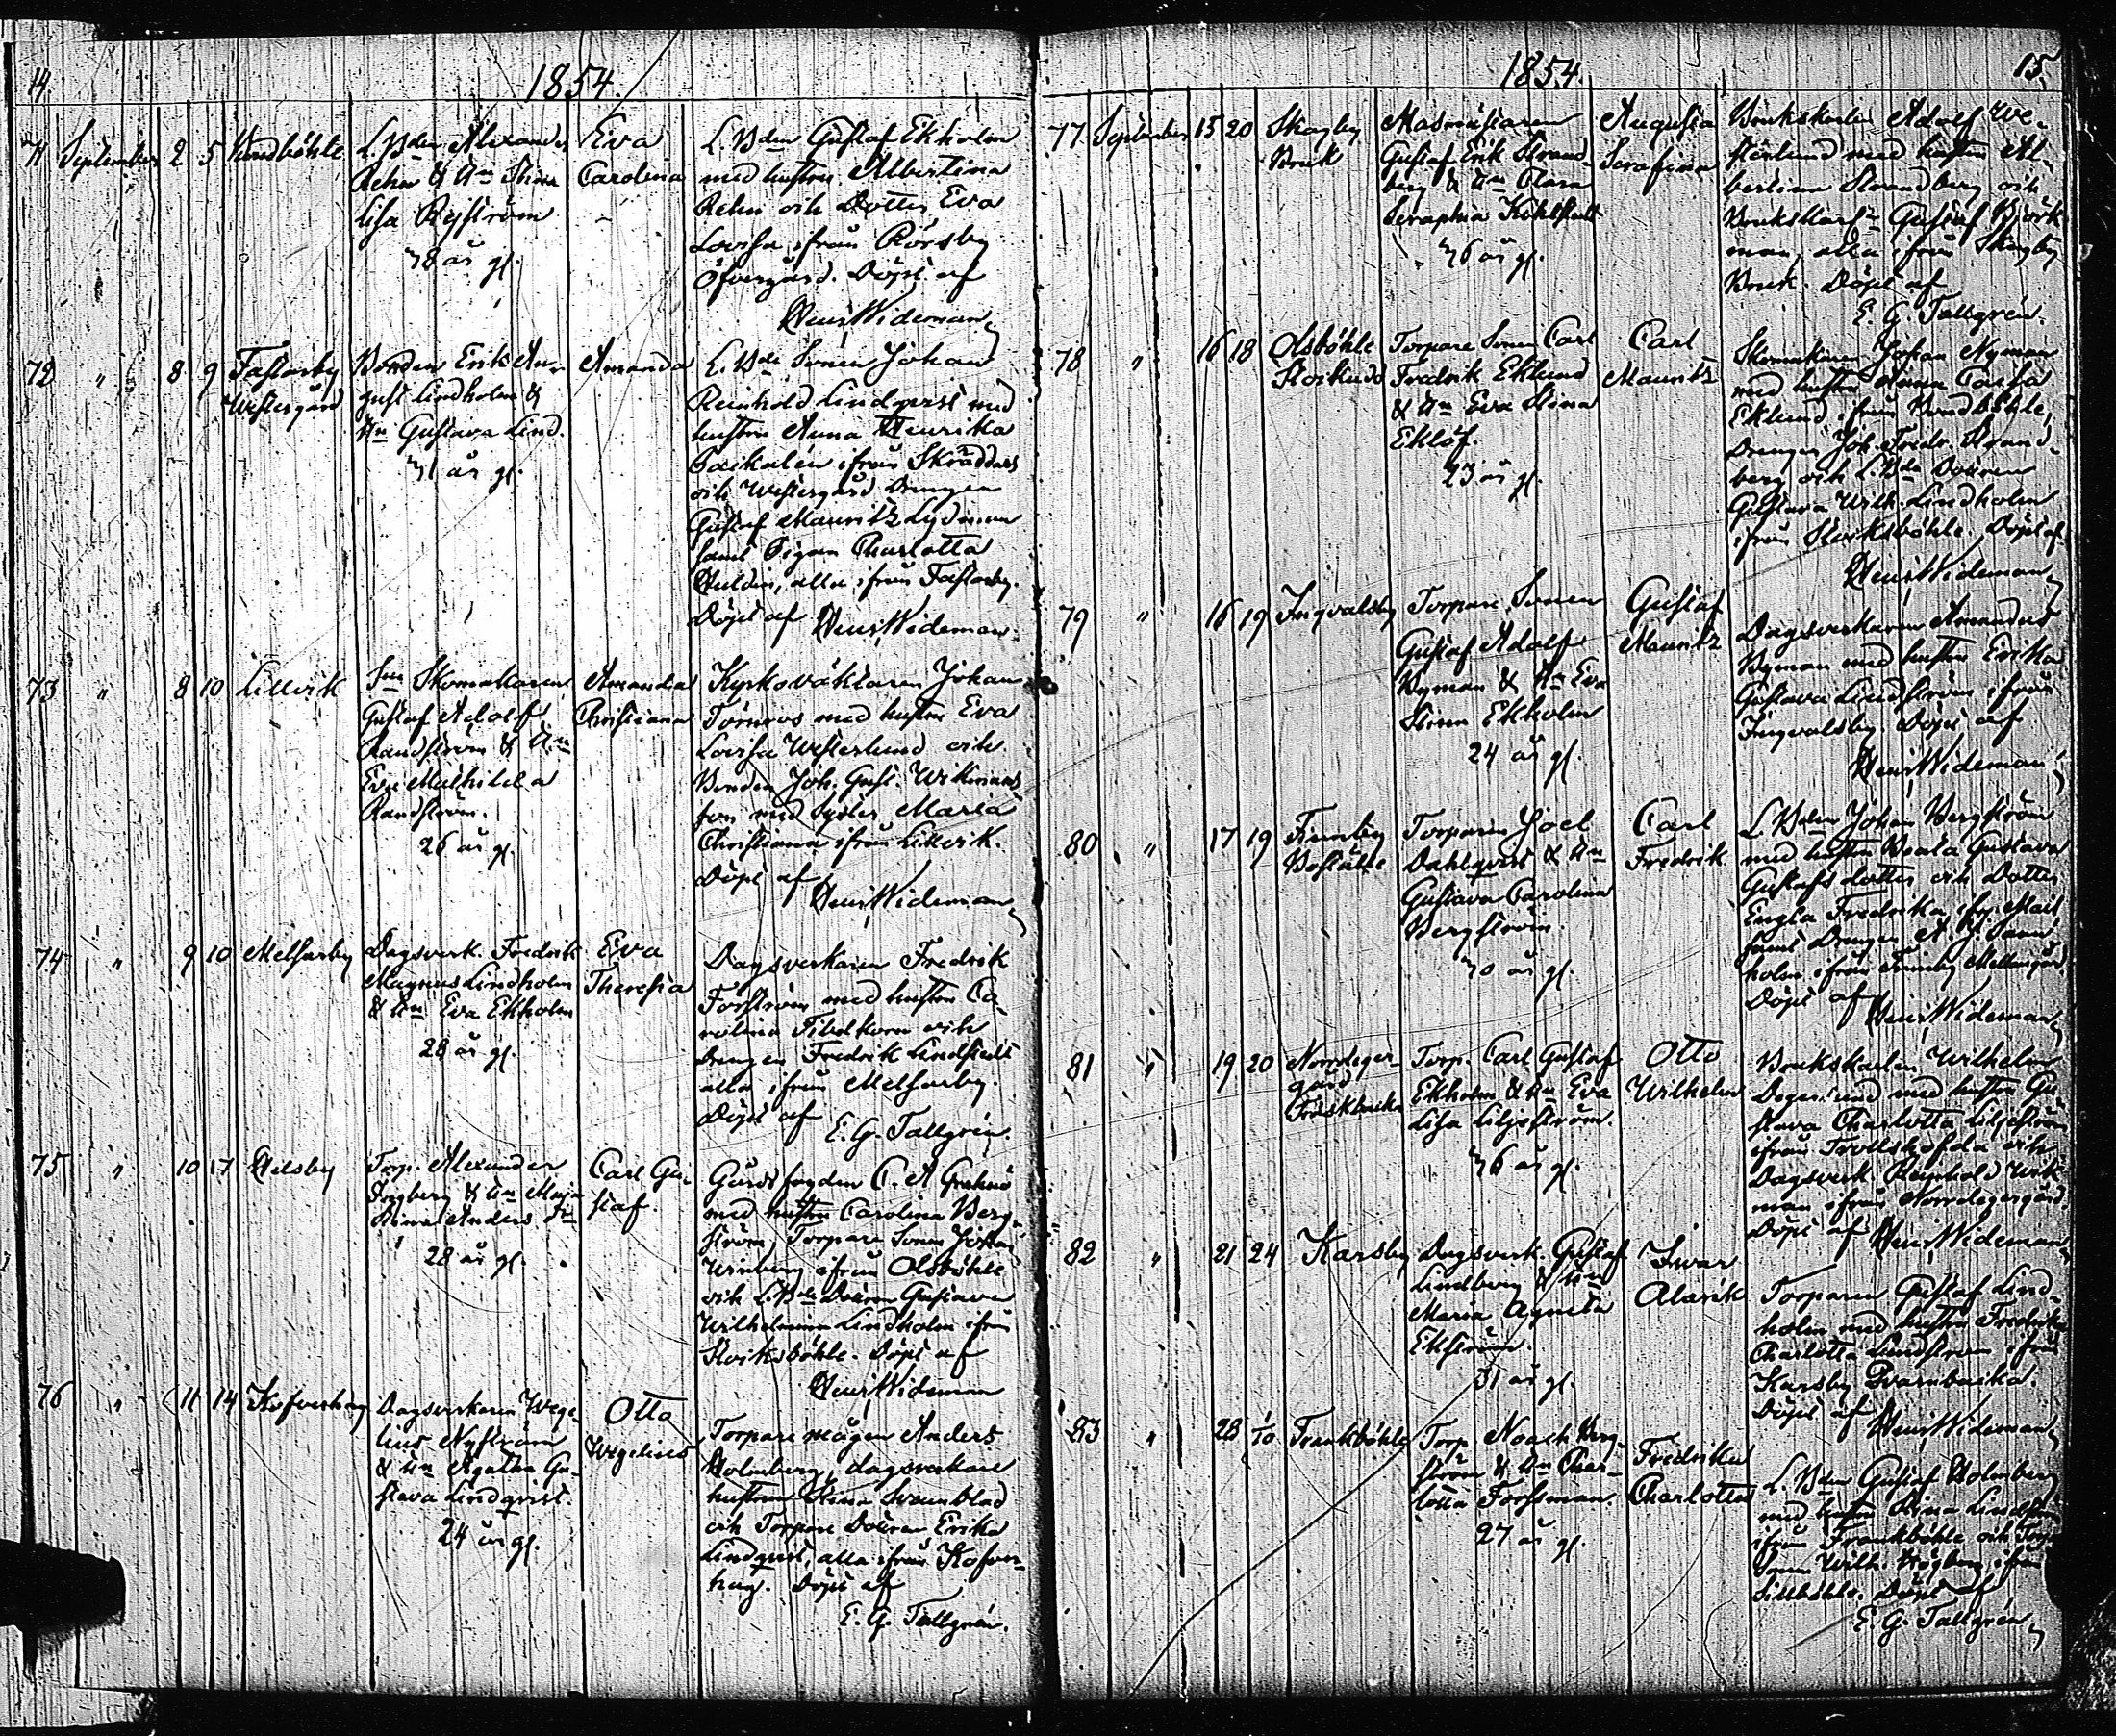 14
1854.
71 September 2 5
L. Bden Alexander
Rehn & Hn Stina
Lisa Rejström
38 år gl.
Eva
Carolina
L. Bden Gustaf Ekholm
med hustru Albertina
Rehn och Dotter Eva
Lovisa, ifrån Rörsby
Öfvergård. Döpt af
Henr. Wideman
72 " 8 9 Fastarby
Westergård
Bonden Erik Au-
gust Lindholm &
Hn Gustava Lind.
31 år gl.
Amanda
L. Bde Sonen Johan
Reinhold Lindqvist med
hustru Anna Henrika
ifrån Skräddars
och Westergård Drengen
Gustaf Mauritz Lydman
samt Pigan Charlotta
Huldin, alla ifrån Fastarby.
Döpt af Henr. Wideman.
73 " 8 10 Lillvik
Skomakaren
Gustaf Adolf
Randström & Hn
Eva Mathilda
Randström.
26 år gl.
Amanda
Christiana
Kyrkováktaren Johan
Törnroos med hustru Eva
Lovisa Westerlund och
Bonden Joh. Gust. Wikmans-
son med syster Maria
Christiana ifrån Lillvik.
Döpt af
Henr. Wideman
74 " 9 10 Melsarby
Dagsverk. Fredrik
Magnus Lindholm
& Hn Eva Ekholm
28 år gl.
Eva
Theresia
Dagsverkaren Fredrik
Forsström med hustru Ca-
rolina Tibelkorn och
Drengen Fredrik Lindstedt
alla ifrån Melsarby.
Döpt af
E. G. Tallgrén.
75 " 10 17 Helsby
Torp. Alexander
& Hn Maja
Stina Anders Dr
28 år gl.
Carl Gu-
staf
Gårdsfogden C. A.
med hustru Carolina Berg-
ström, Torpare Sonen Johan
ifrån Olsböhle
och L. Bde Dottren Gustava
Wilhelmina Lindholm ifrån
Storksböhle. Döpt af
Henr. Wideman
76 " 11 14 Kofverhag
Dagsverkaren Wege-
lius Nyström
& Hn Agatha Gu-
stava Lindqvist.
24 år gl.
Otto
Wegelius
Torpare mågen Anders
Holmberg, dagsverkare
hustrun Stina Svanblad
och Torpare Dottren Erika
Lindqvist, alla ifrån Kofver-
hag. Döpt af
E. G. Tallgrén.
1854.
15
77 September 15 20 Skogby
Bruk
Masmästaren
Gustaf Erik Strand-
berg & Hn Clara
Seraphia
36 år gl.
Augusta
Serafina
Brukskarlen Adolf We-
sterlund med hustru Al-
bertina Strandberg och
Brukskarln Gustaf Björk-
man, alla ifrån Skogby
Bruk. Döpt af
E. G. Tallgrén.
78 " 16 18 Olsböhle
Torpare Sonen Carl
Fredrik Eklund
& Hn Eva Stina
Eklöf.
23 år gl.
Carl
Mauritz
Skomakaren Johan Nyman
med hustru Anna Caisa
Eklund, ifrån
Drengen Joh. Fredr. Strand-
berg och L. Bde Dottren
Gustava Wilh. Lindholm
ifrån Storksböhle. Döpt af
Henr. Wideman
79 " 16 19 Ingvalsby
Torpare Sonen
Gustaf Adolf
Nyman & Hn Eva
Stina Ekholm
24 år gl.
Gustaf
Mauritz
Dagsverkaren Amandus
Nyman med hustru Erika
Gustava Lindström ifrån
Ingvalsby. Döpt af
Henr. Wideman
80 " 17 19 Finnby
Torparen Joel
Dahlqvist & Hn
Gustava Carolina
Bergström.
30 år gl.
Carl
Fredrik
L. Bden Johan Bergström
med hustru Beata Gustava
Gustafs dotter och Dotter
Engla Fredrika,
samt Drengen A. J.
holm ifrån Finnby Mellangård
Döpt af
Henr. Wideman
81 " 19 20
gård
Torp. Carl Gustaf
Ekholm & Hn Eva
Lisa Liljeström.
36 år gl.
Otto
Wilhelm
Brukskarlen Wilhelm
med hustru Gu-
stava Charlotta Liljeström
ifrån Trollshofda och
Dagsverk. Reinhold Wik-
man ifrån
Döpt af Henr. Wideman
82 " 21 24 Karsby
Dagsverk. Gustaf
Lindberg & Hn
Maria Agneta
Ekström.
31 år gl.
Iwar
Alarik
Torparen Gustaf Lind-
holm med hustru Fredrika
Charlotta Lindström ifrån
Karsby Qvarnbacka.
Döpt af
Henr. Wideman
83 " 28 1/10 Trankböhle
Torp. Noach Berg-
ström & Hn Char-
lotta Forssman.
27 år gl.
Fredrika
Charlotta
L. Bden Gustaf Holmberg
med hustru Stina
ifrån Trankböhle och
Sonen Wilh. Högberg ifrån
Lillböhle. Döpt af
E. G. Tallgrén